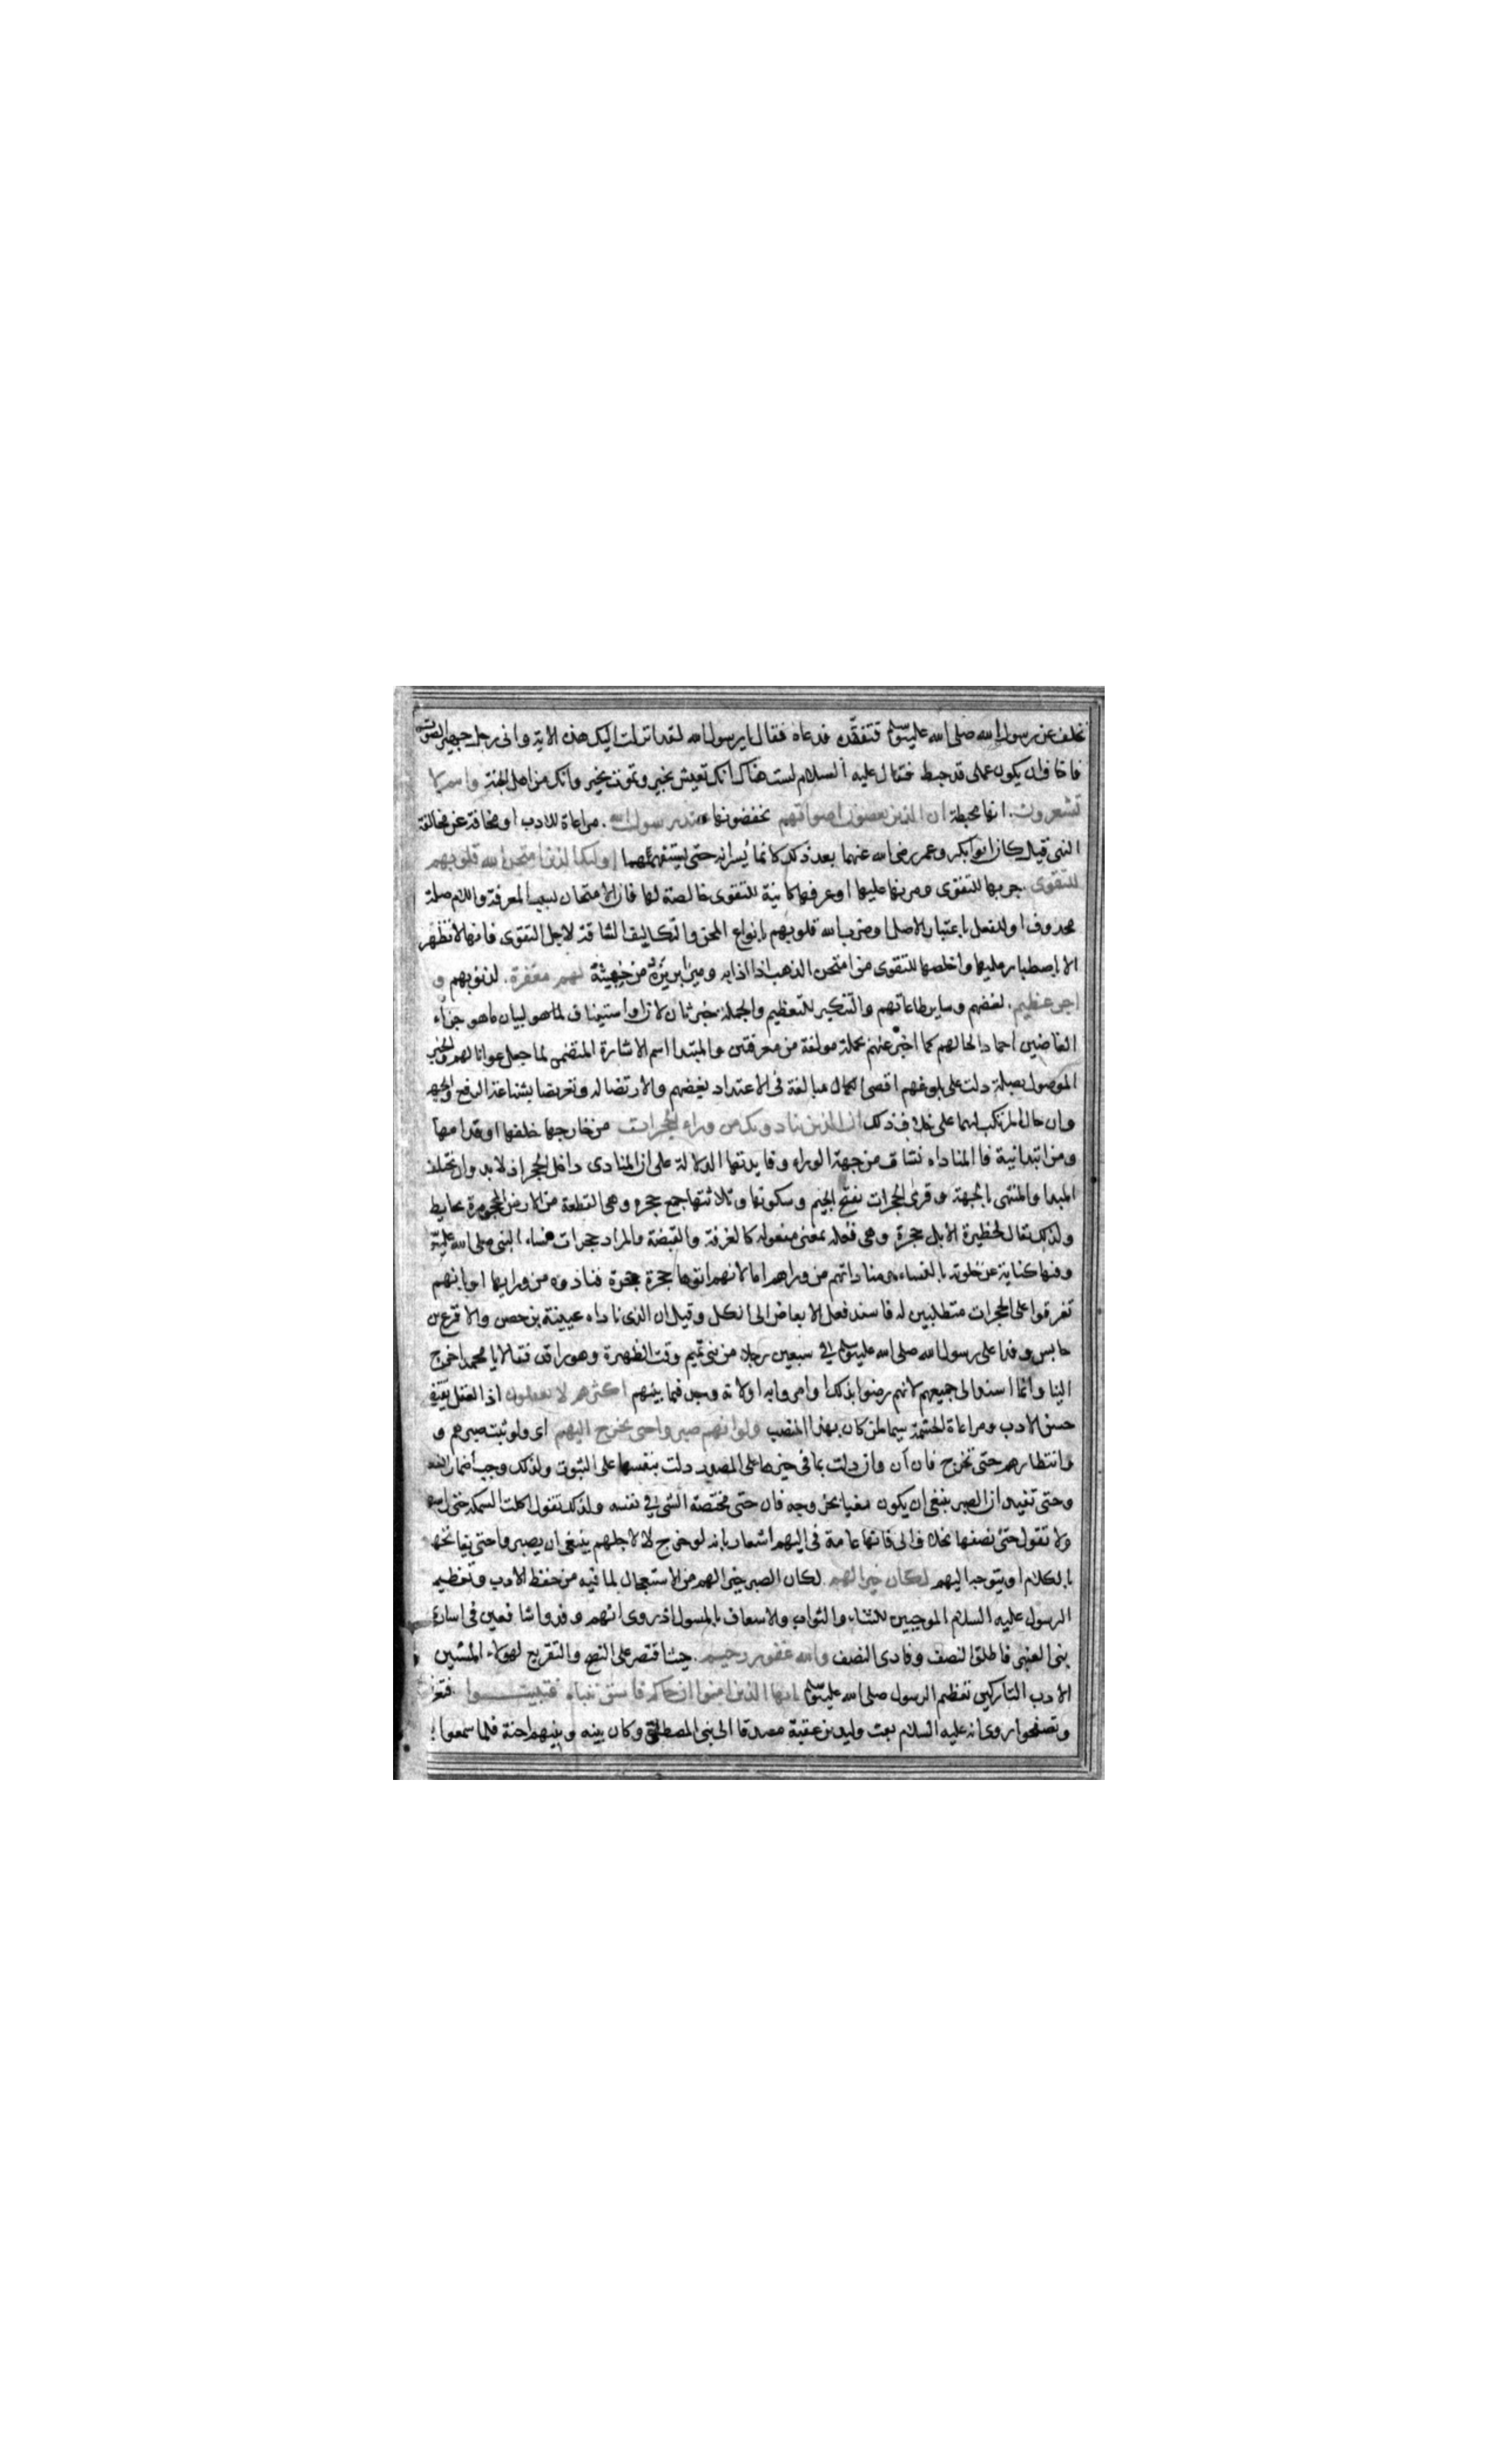 تخلف عن رسول الله صلى الله عليه وسلم فتفقده فدعاه فقال يا رسول الله لقد انزلت اليك هذه الاية وانى رجل جهير الصوت
فاخاف ان يكون عملى قد حبط فقال عليه السلام لست هناك انك تعيش بخير وتموت بخير وانك من اهل الجنة وانتم لا
تشعرون. انها محبطة ان الذين يغضون اصواتهم يخفضونها عند رسول الله. مراعاة للادب او مخافة عن مخالفة
النهى قيل كان ابو بكر وعمر رضى الله عنهما بعد ذلك كانا يسرانه حتى يستفهمهما اولئك الذين امتحن الله قلوبهم
للتقوى. جربها للتقوى ومرنها عليها او عرفها كائنة للتقوى خالصة لها فان الامتحان سبب المعرفة واللام صلة
محذوف او للفعل باعتبار الاصل او ضرب الله قلوبهم بانواع المحن والتكاليف الشاقة لاجل التقوى فانها لا تظهر
الا بالاصطبار عليها واخلصها للتقوى من امتحن الذهب اذا اذابه وميز ابريزه من خبيثه لهم مغفرة. لذنوبهم و
اجر عظيم. لغضهم وساير طاعاتهم والتنكير للتعظيم والجملة خبر ثان لان او استيناف لما هو لبيان ما هو جزاء
الغاضين احمادا لحالهم كما اخبر عنهم بجملة مولفة من معرفتين والمبتدا اسم الاشارة المتضمن لما جعل عوانا لهم والخبر
الموصول بصلة دلت على بلوغهم اقصى الكمال مبالغة فى الاعتداد بغضهم والارتضا له وتعريضا بشناعة الرفع والجهر
وان حال المرتكب لهما على خلاف ذلك ان الذين ينادونك من وراء الحجرات من خارجها خلفها او قدامها
ومن ابتدائية فان المناداه نشات من جهة الوراء وفايدتها الدلالة على ان المنادى داخل الحجرة اذ لا بد وان يختلف
المبدا والمنتهى بالجهة وقرئ الحجرات بفتح الجيم وسكونها وثلاثتها جمع حجره وهى القطعة من الارض المحجورة بحايط
ولذلك يقال لحظيرة الابل حجرة وهى فعله بمعنى مفعوله كالغرفة والقبضة والمراد حجرات نساء النبى صلى الله عليه
وفيها كناية عن خلوته بالنساء ومناداتهم من وراها اما لانهم اتوها حجرة حجرة فنادوه من ورايها او بانهم
تفرقوا على الحجرات متطلبين له فاسند فعل الابعاض الى الكل وقيل ان الذى ناداه عيينة بن حصن والاقرع بن
حابس وفدا على رسول الله صلى الله عليه وسلم فى سبعين رجلا من بنى تميم وقت الظهيرة وهو راقد فقالا يا محمد اخرج
الينا وانما اسند الى جميعهم لانهم رضوا بذلك او امروا به او لانه وجد فيما بينهم اكثرهم لا يعقلون اذ العقل يقتضى
حسن الادب ومراعاة الحشمة سيما لمن كان بهذا المنصب ولو انهم صبروا حتى يخرج اليهم اى ولو ثبت صبرهم و
وانتظارهم حتى تخرج فان ان وان دلت بما فى حيزها على المصدر دلت بنفسها على الثبوت ولذلك وجب اضمار الفعل
وحتى تفيد ان الصبر ينبغى ان يكون مغيا بخروجه فان حتى مختصة الشى فى نفسه ولذلك تقول اكلت السمكة حتى راسها
ولا تقول حتى نصفها بخلاف الى فانها عامة فى اليهم اشعار بانه لو خرج لا لاجلهم ينبغى ان يصبروا حتى يفاتحهم
بالكلام او يتوجه اليهم لكان خيرا لهم. لكان الصبر خيرا لهم من الاستعجال لما فيه من حفظ الادب وتعظيم
الرسول عليه السلام الموجبين للثناء والثواب والاسعاف بالمسول اذ روى انهم وفدوا شافعين فى اسارى
بنى العنبر فاطلق النصف وفادى النصف والله غفور رحيم. حيث اقتصر على النصح والتقريع لهولاء المسئين
الادب التاركين تعظيم الرسول صلى الله عليه وسلم يا ايها الذين امنوا ان جاءكم فاسق بنباء فتبينوا. فتعرفوا
وتصفحوا روى انه عليه السلام بعث وليد بن عقبة مصدقا الى بنى المصطلق وكان بينه وبينهم احنة فلما سمعوا